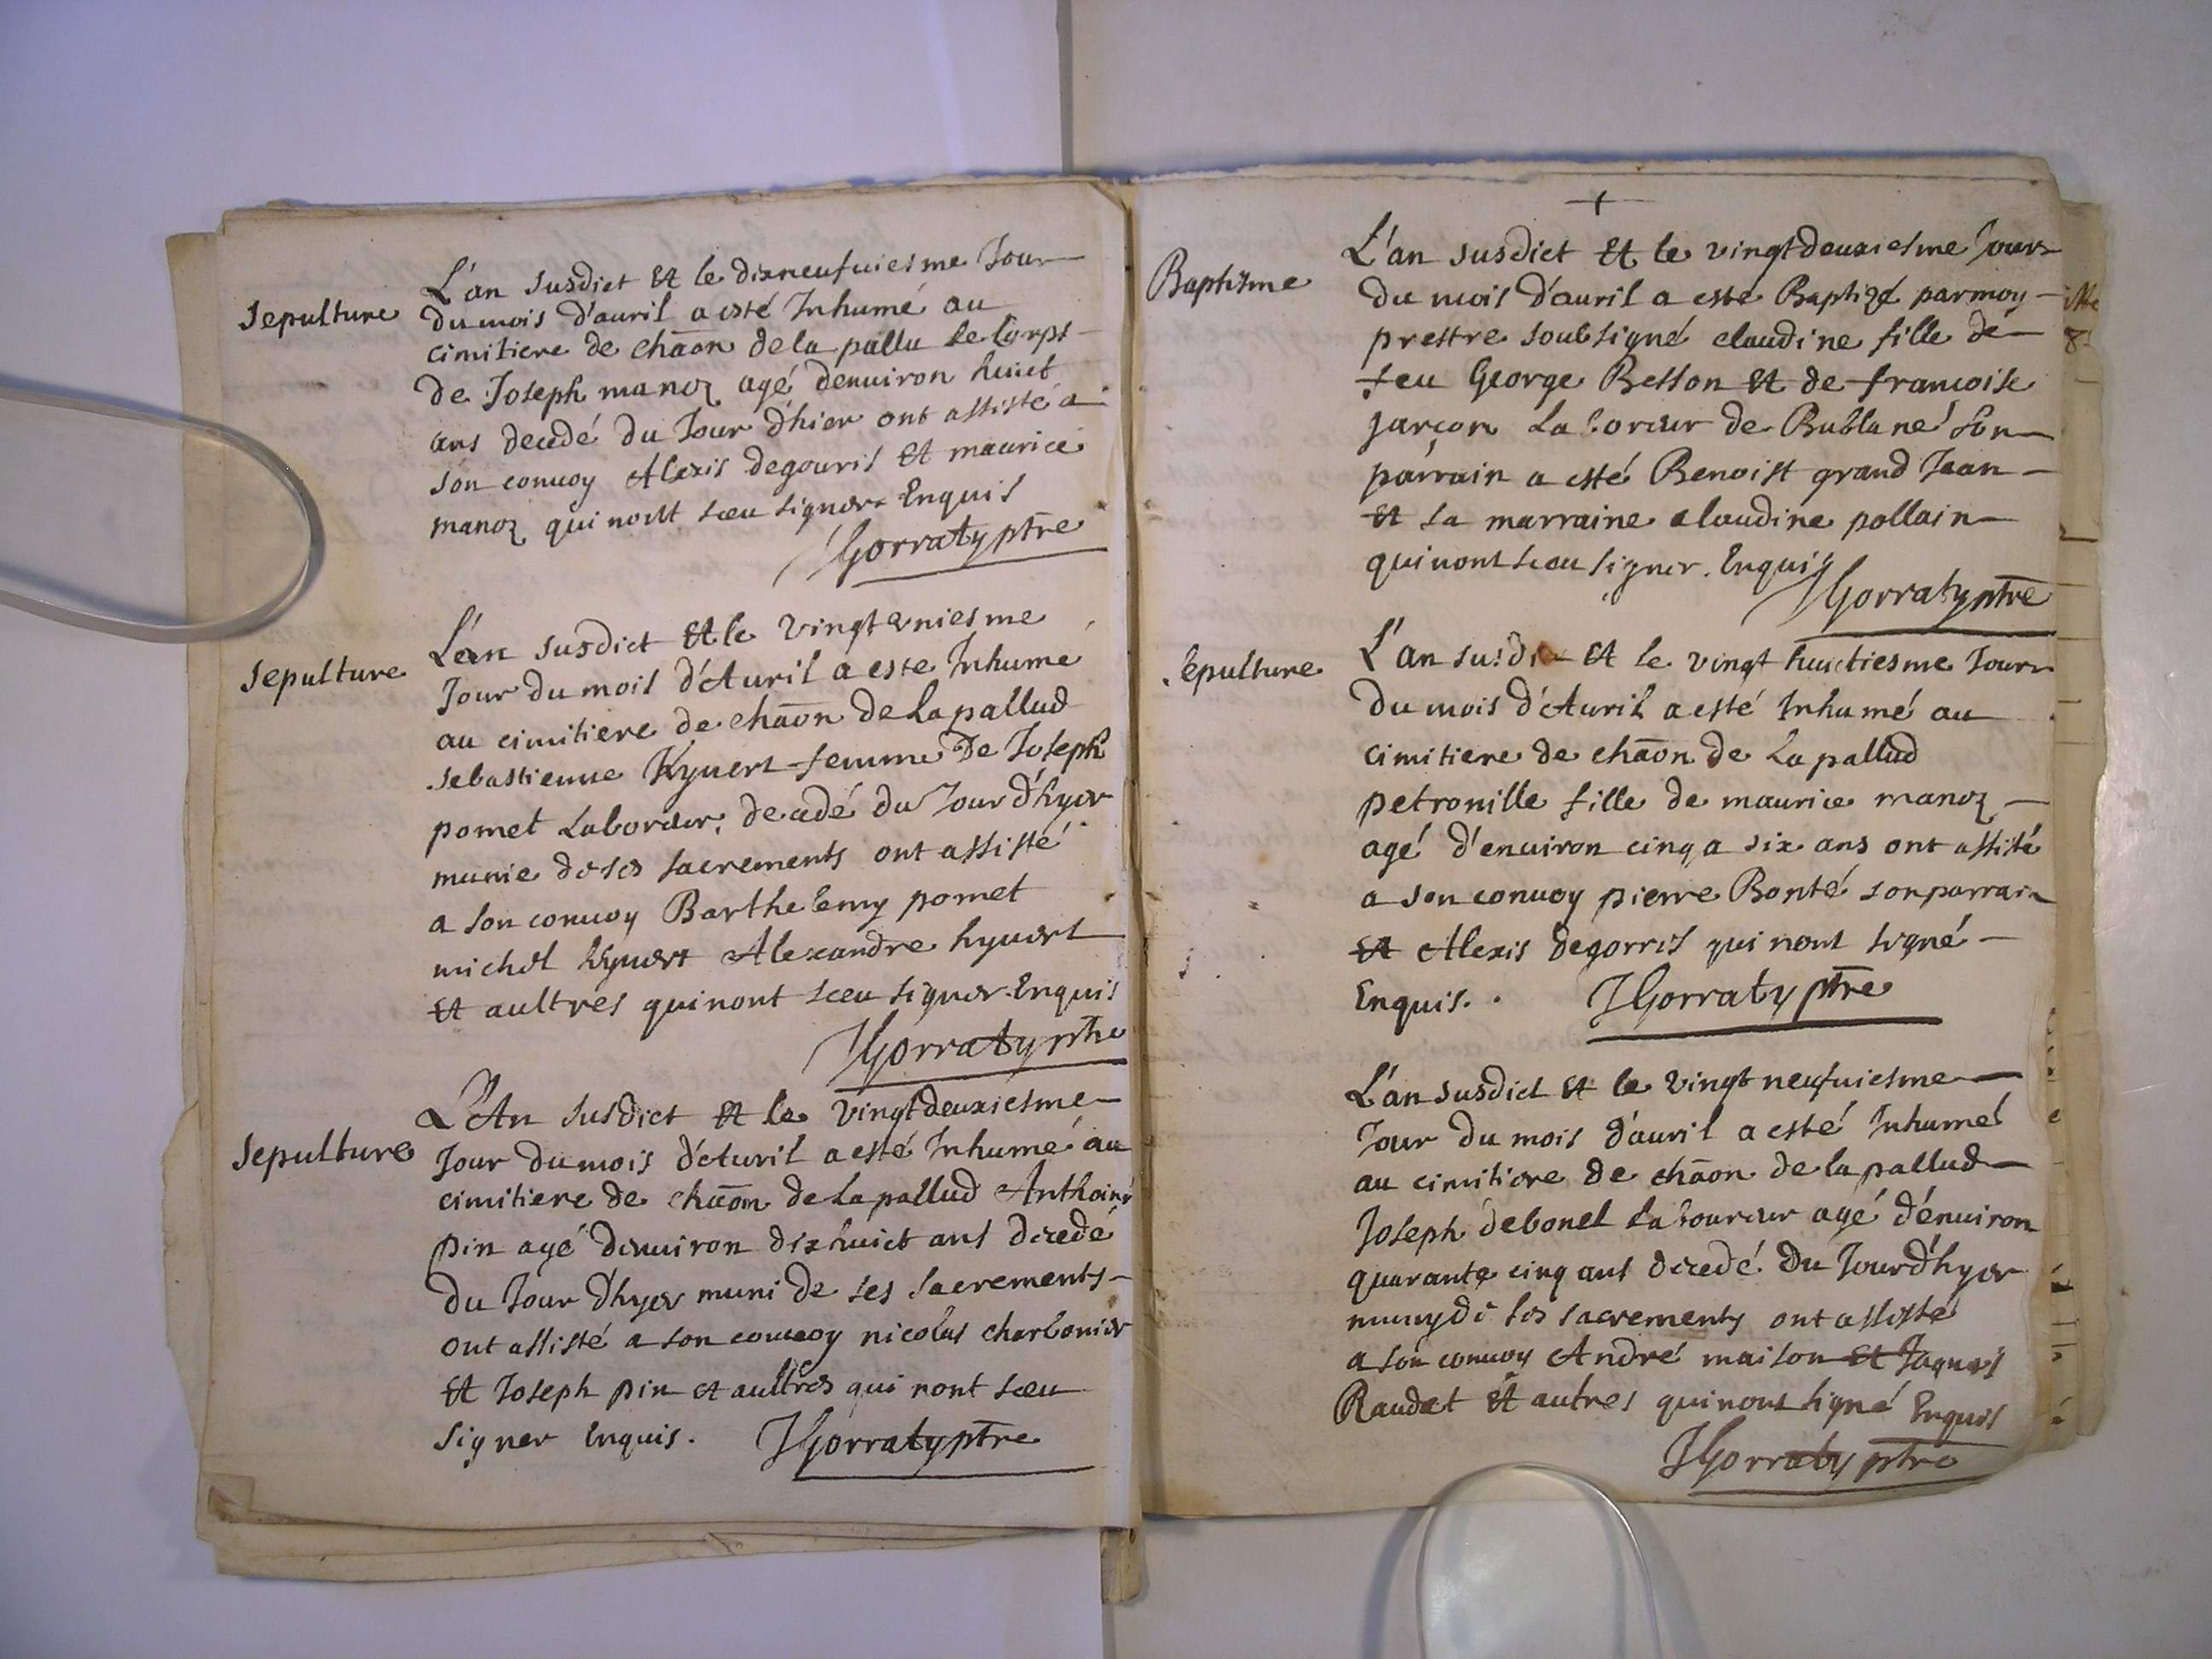 Sepulture
L'an susdict Et le dixneufuiesme Jour
du mois d'auril a esté Inhumé au
cimitiere de chāon de la pallu le Corps
de Joseph manoz agé denuiron huict
ans decedé du Jour d'hier ont assisté a
son conuoy Alexis degouris Et maurice
manoz qui nont sceu signer Enquis
JGorraty ptre
Sepulture
L'an susdict Et le vingt uniesme
Jour du mois d'Auril a este Inhume
au cimitiere de chāon de La pallud
sebastienne Hyuert femme De Joseph
pomet Laboreur, decedé du Jour d'hyer
munie de ses sacrements ont assisté
a son conuoy Barthelemy pomet
michel hyuert Alexandre hyuert
Et aultres qui nont sceu signer Enquis
JGorraty ptre
Sepulture
L'An susdict Et le vingt deuxiesme
Jour du mois d'Auril a esté Inhumé au
cimitiere de chāon de La pallud Anthoine
pin agé denuiron dix huict ans decedé
du Jour d'hyer muni de ses sacrements
ont assisté a son conuoy nicolas charbonier
Et Joseph pin et aultres qui nont sceu
signer Enquis. JGorraty ptre
Baptisme
L'an susdict Et le vingt deuxiesme Jour
du mois d'auril a esté Baptizé par moy
prestre soubsigné claudine fille de
feu George Besson Et de francoise
jarcon Laboreur de Bublane Son
parrain a esté Benoist grand Jean
Et sa marraine claudine pollain
qui nont sceu signer. Enquis
JGorraty ptre
sepulture
L'an susdi Et le vingt huictiesme Jour
du mois d'Auril a esté Inhumé au
cimitiere de chāon de La pallud
petronille fille de maurice manoz
agé d'enuiron cinq a six ans ont assisté
a son conuoy pierre Bonté son parrain
Et Alexis degorris qui nont signé
Enquis. JGorraty ptre
L'an susdict Et le vingt neufuiesme
Jour du mois d'auril a esté Inhumé
au cimitiere de chāon de la pallud
Joseph debonel Laboureur agé d'enuiron
quarante cinq ans decedé du Jour d'hyer
muny de ses sacrements ont assisté
a son conuoy André maison Et Jaques
Raudet Et autres qui nont signé Enquis
JGorraty ptre